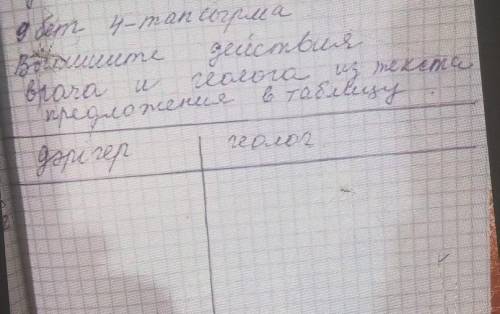 9 бет 4-тапсырма
Выпишите действия
врача и геолога из текста
предложения в таблицу.
дәрігер геолог